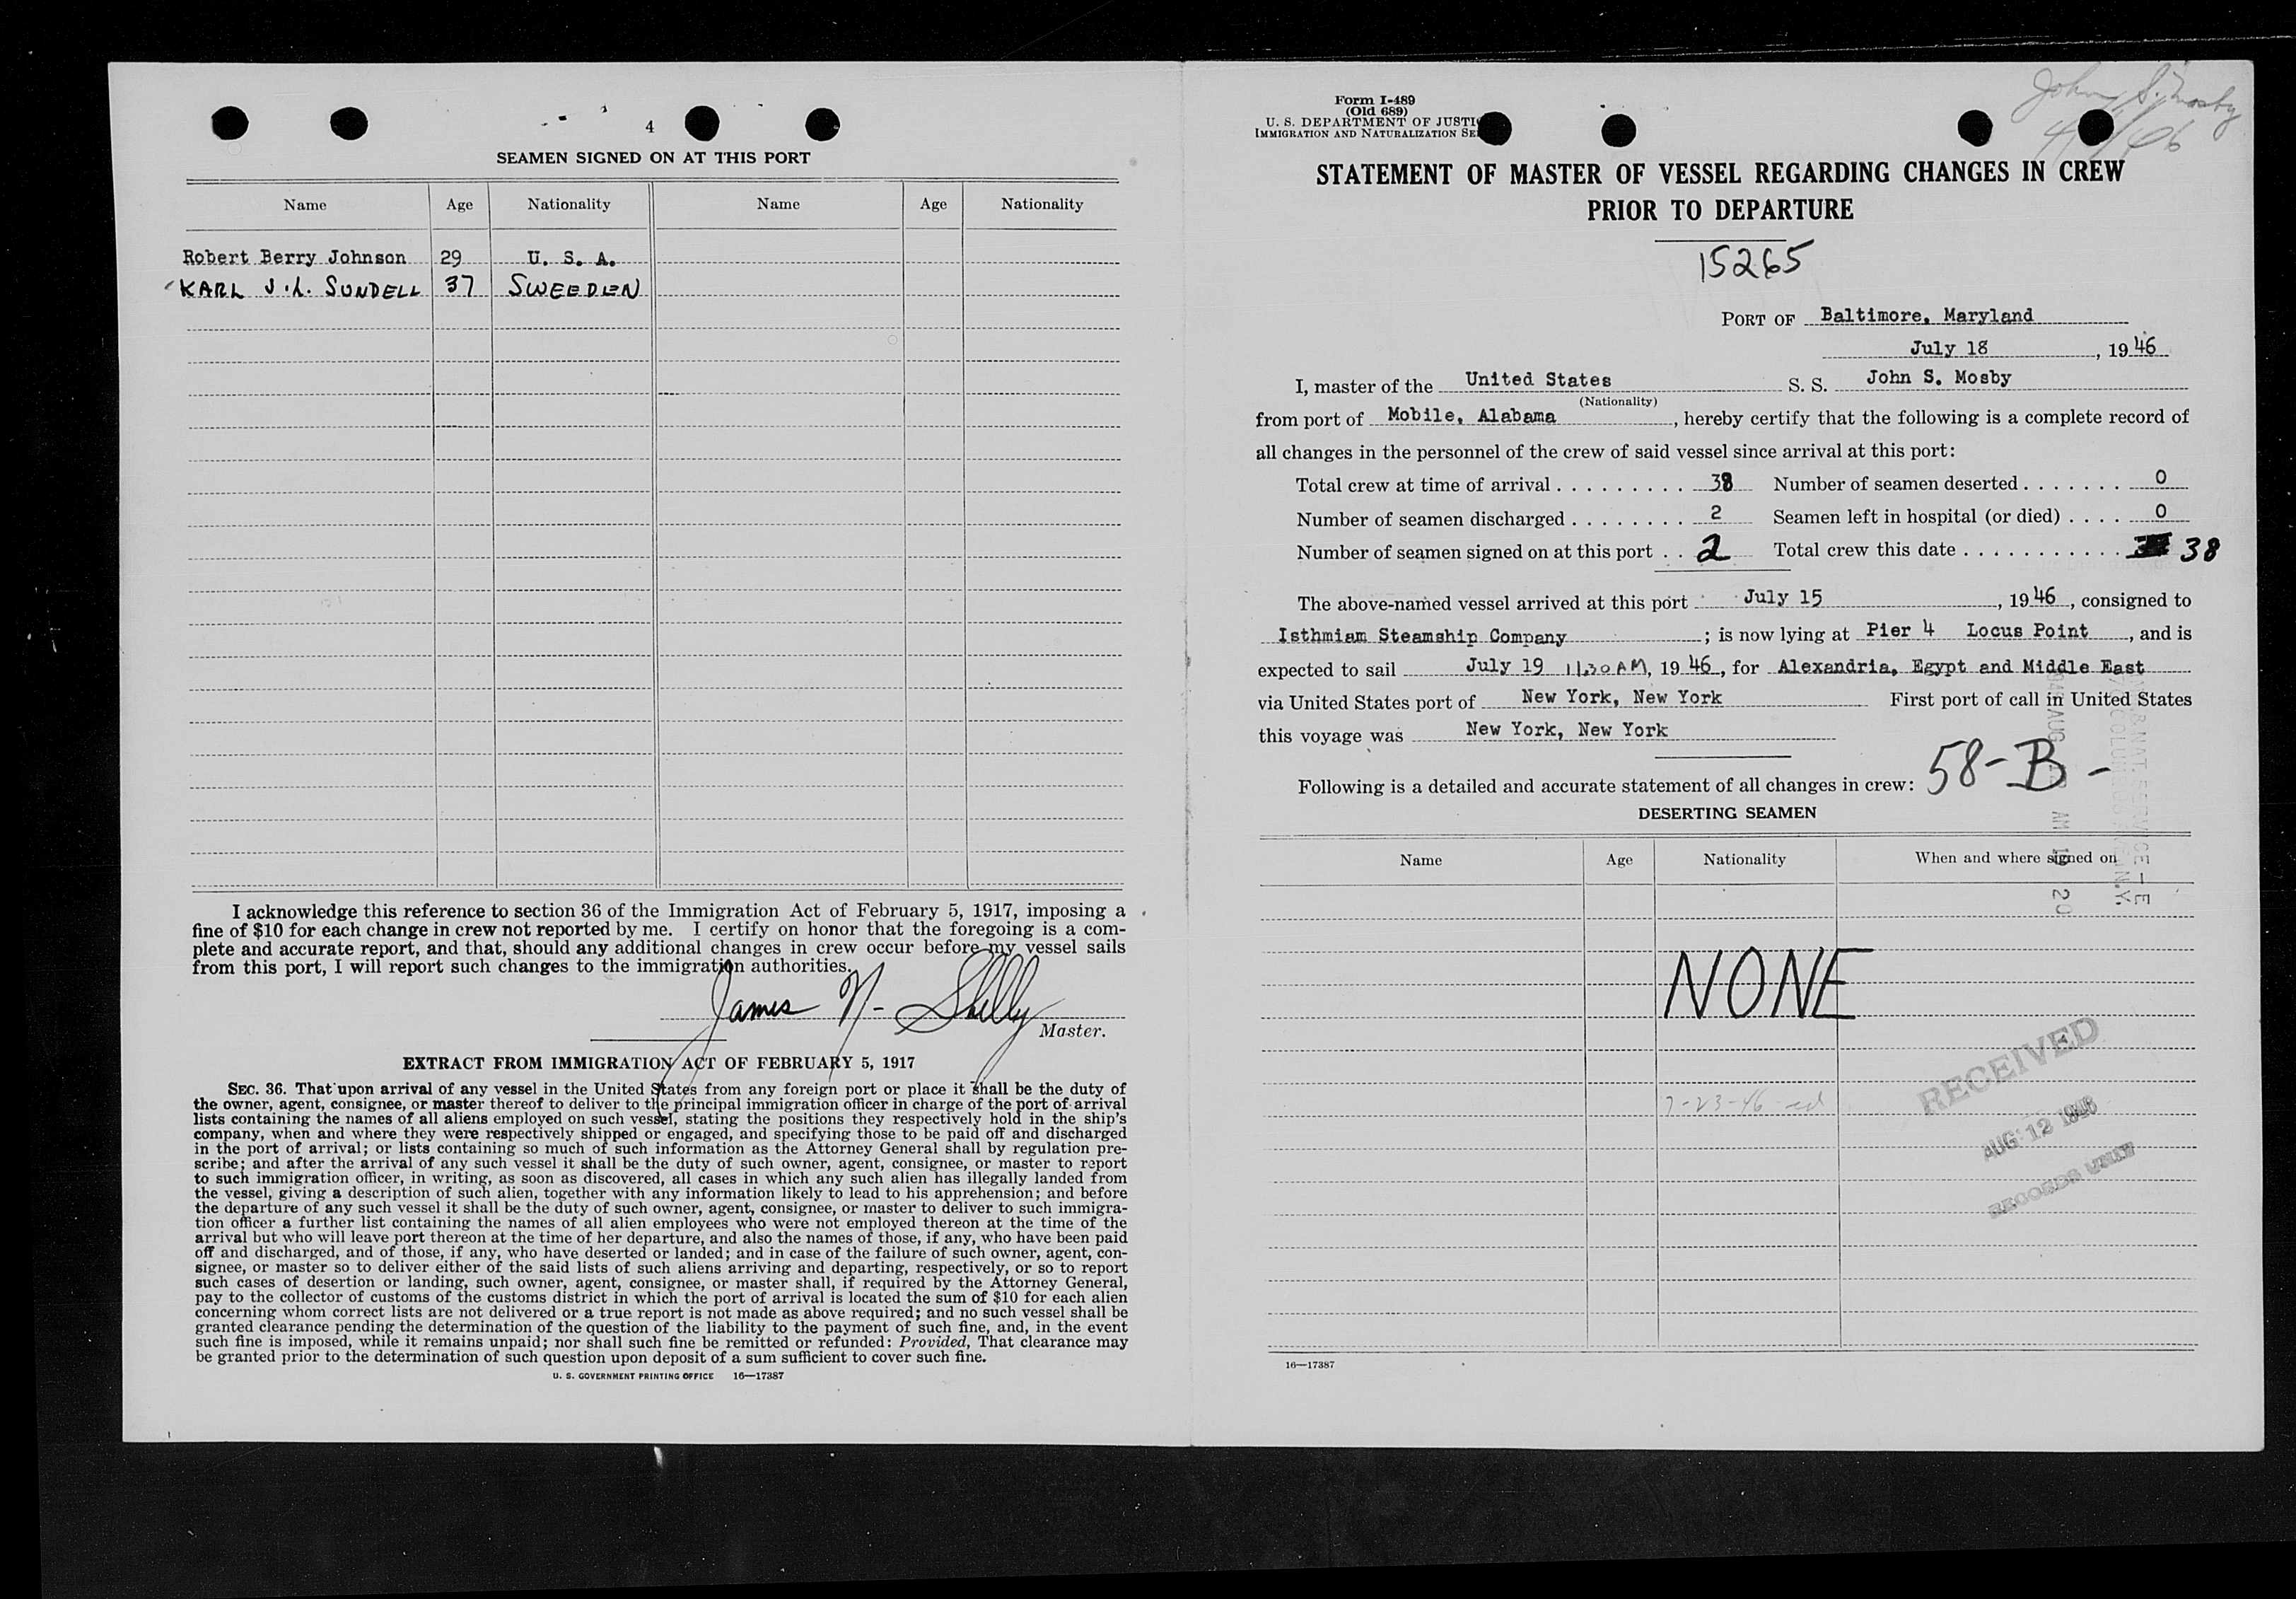 4
SEAMEN SIGNED ON AT THIS PORT
Name Age Nationality Name Age Nationality
Robert Berry Johnson 29 U. S. A.
KARL J.L. SUNDELL 37 SWEEDEN
I acknowledge this reference to section 36 of the Immigration Act of February 5, 1917, imposing a
fine of $10 for each change in crew not reported by me. I certify on honor that the foregoing is a com-
plete and accurate report, and that, should any additional changes in crew occur before my vessel sails
from this port, I will report such changes to the immigration authorities.
James N- Shelly
Master.
EXTRACT FROM IMMIGRATION ACT OF FEBRUARY 5, 1917
SEC. 36. That upon arrival of any vessel in the United States from any foreign port or place it shall be the duty of
the owner, agent, consignee, or master thereof to deliver to the principal immigration officer in charge of the port of arrival
lists containing the names of all aliens employed on such vessel, stating the positions they respectively hold in the ship's
company, when and where they were respectively shipped or engaged, and specifying those to be paid off and discharged
in the port of arrival; or lists containing so much of such information as the Attorney General shall by regulation pre-
scribe; and after the arrival of any such vessel it shall be the duty of such owner, agent, consignee, or master to report
to such immigration officer, in writing, as soon as discovered, all cases in which any such alien has illegally landed from
the vessel, giving a description of such alien, together with any information likely to lead to his apprehension; and before
the departure of any such vessel it shall be the duty of such owner, agent, consignee, or master to deliver to such immigra-
tion officer a further list containing the names of all alien employees who were not employed thereon at the time of the
arrival but who will leave port thereon at the time of her departure, and also the names of those, if any, who have been paid
off and discharged, and of those, if any, who have deserted or landed; and in case of the failure of such owner, agent, con-
signee, or master so to deliver either of the said lists of such aliens arriving and departing, respectively, or so to report
such cases of desertion or landing, such owner, agent, consignee, or master shall, if required by the Attorney General,
pay to the collector of customs of the customs district in which the port of arrival is located the sum of $10 for each alien
concerning whom correct lists are not delivered or a true report is not made as above required; and no such vessel shall be
granted clearance pending the determination of the question of the liability to the payment of such fine, and, in the event
such fine is imposed, while it remains unpaid; nor shall such fine be remitted or refunded: Provided, That clearance may
be granted prior to the determination of such question upon deposit of a sum sufficient to cover such fine.
U. S. GOVERNMENT PRINTING OFFICE 16—17387
John S. Mosby
Form I-489
(Old 689)
U. S. DEPARTMENT OF JUSTI
IMMIGRATION AND NATURALIZATION SE
STATEMENT OF MASTER OF VESSEL REGARDING CHANGES IN CREW
PRIOR TO DEPARTURE
15265
PORT OF Baltimore, Maryland
July 18, 1946
I, master of the United States S. S. John S. Mosby
(Nationality)
from port of Mobile, Alabama, hereby certify that the following is a complete record of
all changes in the personnel of the crew of said vessel since arrival at this port:
Total crew at time of arrival . . . . . . . . . 38 Number of seamen deserted . . . . . . . 0
Number of seamen discharged . . . . . . . . 2 Seamen left in hospital (or died) . . . . 0
Number of seamen signed on at this port . . 2 Total crew this date . . . . . . . . . . . 38
The above-named vessel arrived at this port July 15, 1946, consigned to
Isthmiam Steamship Company; is now lying at Pier 4 Locus Point, and is
expected to sail July 19 11.30 AM, 1946, for Alexandria, Egypt and Middle East
via United States port of New York, New York First port of call in United States
this voyage was New York, New York
Following is a detailed and accurate statement of all changes in crew: 58-B-
DESERTING SEAMEN
Name Age Nationality When and where signed on
NONE
7-23-46
RECEIVED
AUG 12 1946
RECORDS UNIT
16—17387